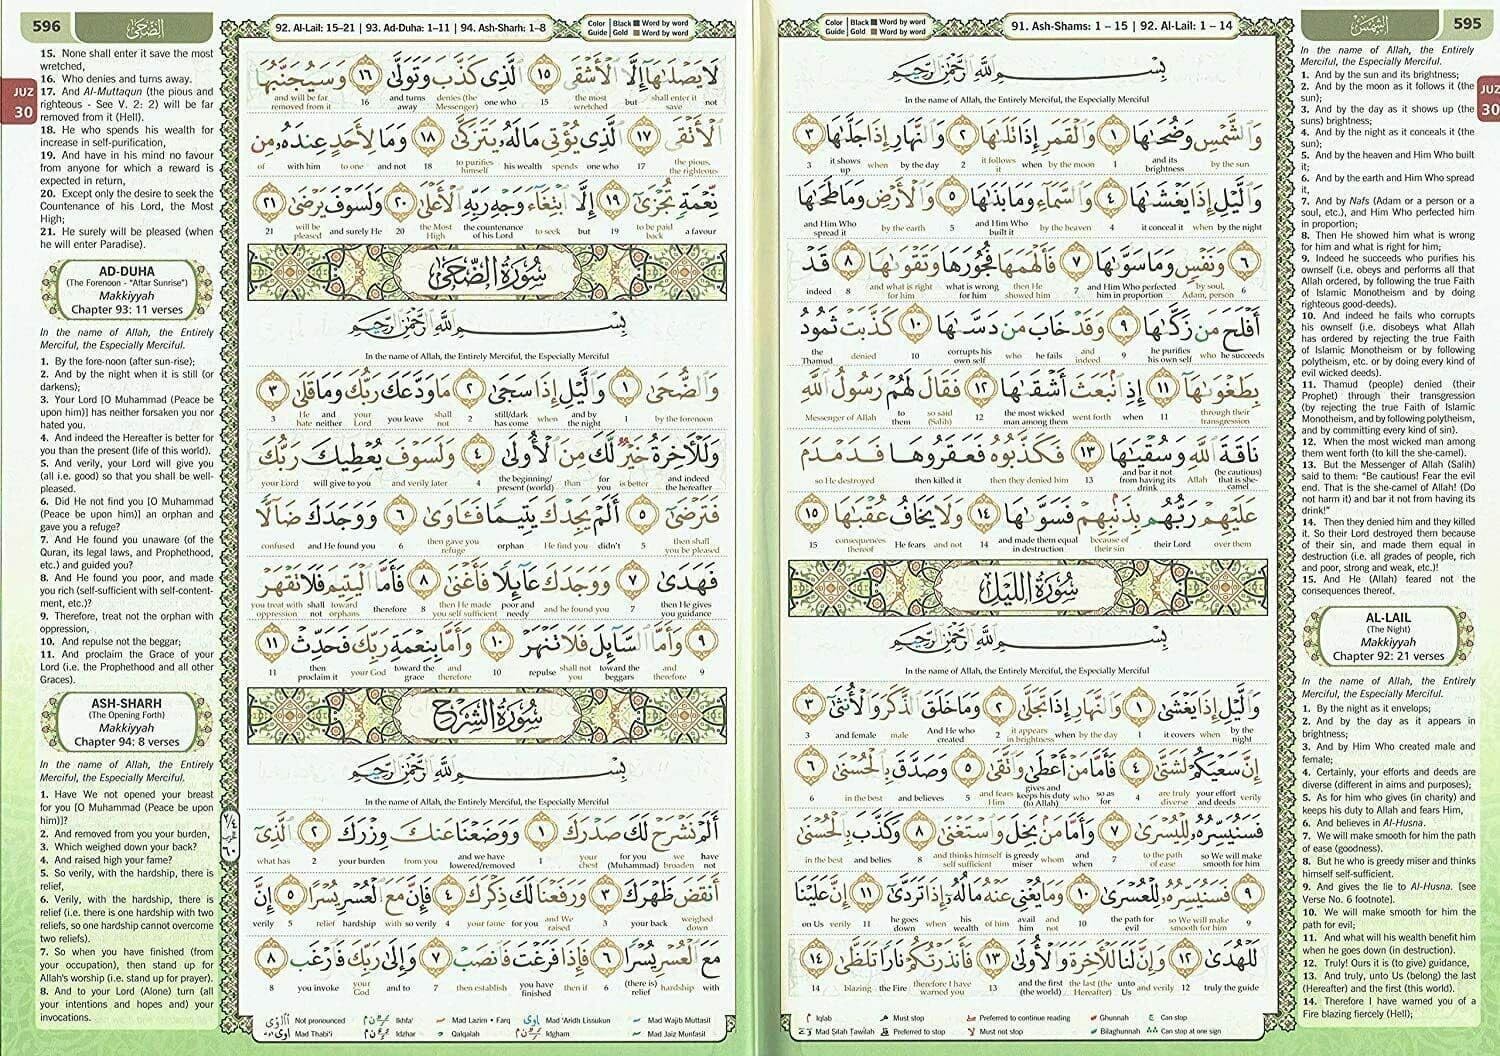 595
الشمس
91. Ash-Shams: 1 - 15 | 92. Al-Lail: 1 - 14
Color Guide | Black Word by word | Gold Word by word
JUZ 30
بِسْمِ اللَّهِ الرَّحْمَٰنِ الرَّحِيمِ
In the name of Allah, the Entirely Merciful, the Especially Merciful
وَالشَّمْسِ وَضُحَىٰهَا ١ وَالْقَمَرِ إِذَا تَلَىٰهَا ٢ وَالنَّهَارِ إِذَا جَلَّىٰهَا ٣
3 it shows up when by the day 2 it follows it when by the moon 1 and its brightness by the sun
وَاللَّيْلِ إِذَا يَغْشَىٰهَا ٤ وَالسَّمَآءِ وَمَا بَنَىٰهَا ٥ وَالْأَرْضِ وَمَا طَحَىٰهَا
and Him Who spread it by the earth 5 and Him Who built it by the heaven 4 it conceal it when by the night
٦ وَنَفْسٍ وَمَا سَوَّىٰهَا ٧ فَأَلْهَمَهَا فُجُورَهَا وَتَقْوَىٰهَا ٨ قَدْ
indeed 8 and what is right for him what is wrong for him then He showed him 7 and Him Who perfected him in proportion by soul, Adam, person 6
أَفْلَحَ مَن زَكَّىٰهَا ٩ وَقَدْ خَابَ مَن دَسَّىٰهَا ١٠ كَذَّبَتْ ثَمُودُ
the Thamud denied 10 corrupts his own self who he fails and indeed 9 he purifies his own self who he succeeds
بِطَغْوَىٰهَآ ١١ إِذِ انۢبَعَثَ أَشْقَىٰهَا ١٢ فَقَالَ لَهُمْ رَسُولُ اللَّهِ
Messenger of Allah to them so said (Salih) 12 the most wicked man among them went forth when 11 through their transgression
نَاقَةَ اللَّهِ وَسُقْيَىٰهَا ١٣ فَكَذَّبُوهُ فَعَقَرُوهَا فَدَمْدَمَ
so He destroyed then killed it then they denied him 13 and bar it not from having its drink Allah (be cautious) that is she-camel
عَلَيْهِمْ رَبُّهُم بِذَنۢبِهِمْ فَسَوَّىٰهَا ١٤ وَلَا يَخَافُ عُقْبَىٰهَا ١٥
15 consequences thereof He fears and not 14 and made them equal in destruction because of their sin their Lord over them
سُورَةُ اللَّيْلِ
بِسْمِ اللَّهِ الرَّحْمَٰنِ الرَّحِيمِ
In the name of Allah, the Entirely Merciful, the Especially Merciful
وَاللَّيْلِ إِذَا يَغْشَىٰ ١ وَالنَّهَارِ إِذَا تَجَلَّىٰ ٢ وَمَا خَلَقَ الذَّكَرَ وَالْأُنثَىٰٓ ٣
3 and female male And He who created 2 it appears in brightness when by the day 1 it covers when by the night
إِنَّ سَعْيَكُمْ لَشَتَّىٰ ٤ فَأَمَّا مَنْ أَعْطَىٰ وَاتَّقَىٰ ٥ وَصَدَّقَ بِالْحُسْنَىٰ ٦
6 in the best and believes 5 and fears Him gives and keeps his duty (to Allah) who so as for 4 are truly diverse your effort and deeds verily
فَسَنُيَسِّرُهُۥ لِلْيُسْرَىٰ ٧ وَأَمَّا مَنۢ بَخِلَ وَاسْتَغْنَىٰ ٨ وَكَذَّبَ بِالْحُسْنَىٰ
in the best and belies 8 and thinks himself self sufficient is greedy miser whom and when 7 to the path of ease so We will make smooth for him
٩ فَسَنُيَسِّرُهُۥ لِلْعُسْرَىٰ ١٠ وَمَا يُغْنِى عَنْهُ مَالُهُۥٓ إِذَا تَرَدَّىٰٓ ١١ إِنَّ عَلَيْنَا
on Us verily 11 he goes down when his wealth of him avail him and not 10 the path for evil so We will make smooth for him 9
لَلْهُدَىٰ ١٢ وَإِنَّ لَنَا لَلْآخِرَةَ وَالْأُولَىٰ ١٣ فَأَنذَرْتُكُمْ نَارًا تَلَظَّىٰ ١٤
14 blazing the Fire therefore I have warned you 13 and the first (the world) the last (the Hereafter) unto Us and verily 12 truly the guide
Iqlab Must stop Preferred to continue reading Ghunnah Can stop
Mad Silah Tawilah Preferred to stop Must not stop Bilaghunnah Can stop at one sign
In the name of Allah, the Entirely
Merciful, the Especially Merciful.
1. And by the sun and its brightness;
2. And by the moon as it follows it (the
sun);
3. And by the day as it shows up (the
suns) brightness;
4. And by the night as it conceals it (the
sun);
5. And by the heaven and Him Who built
it;
6. And by the earth and Him Who spread
it,
7. And by Nafs (Adam or a person or a
soul, etc.), and Him Who perfected him
in proportion;
8. Then He showed him what is wrong
for him and what is right for him;
9. Indeed he succeeds who purifies his
ownself (i.e. obeys and performs all that
Allah ordered, by following the true Faith
of Islamic Monotheism and by doing
righteous good-deeds).
10. And indeed he fails who corrupts
his ownself (i.e. disobeys what Allah
has ordered by rejecting the true Faith
of Islamic Monotheism or by following
polytheism, etc. or by doing every kind of
evil wicked deeds).
11. Thamud (people) denied (their
Prophet) through their transgression
(by rejecting the true Faith of Islamic
Monotheism, and by following polytheism,
and by committing every kind of sin).
12. When the most wicked man among
them went forth (to kill the she-camel).
13. But the Messenger of Allah (Salih)
said to them: "Be cautious! Fear the evil
end. That is the she-camel of Allah! (Do
not harm it) and bar it not from having its
drink!"
14. Then they denied him and they killed
it. So their Lord destroyed them because
of their sin, and made them equal in
destruction (i.e. all grades of people, rich
and poor, strong and weak, etc.)!
15. And He (Allah) feared not the
consequences thereof.
AL-LAIL
(The Night)
Makkiyyah
Chapter 92: 21 verses
In the name of Allah, the Entirely
Merciful, the Especially Merciful.
1. By the night as it envelops;
2. And by the day as it appears in
brightness;
3. And by Him Who created male and
female;
4. Certainly, your efforts and deeds are
diverse (different in aims and purposes);
5. As for him who gives (in charity) and
keeps his duty to Allah and fears Him,
6. And believes in Al-Husna.
7. We will make smooth for him the path
of ease (goodness).
8. But he who is greedy miser and thinks
himself self-sufficient.
9. And gives the lie to Al-Husna. [see
Verse No. 6 footnote].
10. We will make smooth for him the
path for evil;
11. And what will his wealth benefit him
when he goes down (in destruction).
12. Truly! Ours it is (to give) guidance,
13. And truly, unto Us (belong) the last
(Hereafter) and the first (this world).
14. Therefore I have warned you of a
Fire blazing fiercely (Hell);
596
الضحى
92. Al-Lail: 15-21 | 93. Ad-Duha: 1-11 | 94. Ash-Sharh: 1-8
Color Guide | Black Word by word | Gold Word by word
JUZ 30
لَا يَصْلَىٰهَآ إِلَّا الْأَشْقَى ١٥ الَّذِى كَذَّبَ وَتَوَلَّىٰ ١٦ وَسَيُجَنَّبُهَا
and will be far removed from it 16 and turns away denies (the Messenger) one who 15 the most wretched but shall enter it save not
الْأَتْقَى ١٧ الَّذِى يُؤْتِى مَالَهُۥ يَتَزَكَّىٰ ١٨ وَمَا لِأَحَدٍ عِندَهُۥ مِن
of with him to one and not 18 to purifies himself his wealth spends one who 17 the pious, the righteous
نِّعْمَةٍ تُجْزَىٰٓ ١٩ إِلَّا ابْتِغَآءَ وَجْهِ رَبِّهِ الْأَعْلَىٰ ٢٠ وَلَسَوْفَ يَرْضَىٰ ٢١
21 will be pleased and surely He 20 the Most High the countenance of his Lord to seek but 19 to be paid back a favour
سُورَةُ الضُّحَىٰ
بِسْمِ اللَّهِ الرَّحْمَٰنِ الرَّحِيمِ
In the name of Allah, the Entirely Merciful, the Especially Merciful
وَالضُّحَىٰ ١ وَاللَّيْلِ إِذَا سَجَىٰ ٢ مَا وَدَّعَكَ رَبُّكَ وَمَا قَلَىٰ ٣
3 He hate and neither your Lord you leave shall not 2 still/dark has come when and by the night 1 by the forenoon
وَلَلْآخِرَةُ خَيْرٌ لَّكَ مِنَ الْأُولَىٰ ٤ وَلَسَوْفَ يُعْطِيكَ رَبُّكَ
your Lord will give to you and verily later 4 the beginning/ present (world) than for you is better and indeed the hereafter
فَتَرْضَىٰٓ ٥ أَلَمْ يَجِدْكَ يَتِيمًا فَـَٔاوَىٰ ٦ وَوَجَدَكَ ضَآلًّا
confused and He found you 6 then gave you refuge orphan He find you didn't 5 then shall you be pleased
فَهَدَىٰ ٧ وَوَجَدَكَ عَآئِلًا فَأَغْنَىٰ ٨ فَأَمَّا الْيَتِيمَ فَلَا تَقْهَرْ
you treat with oppression shall not toward orphans therefore 8 then He made you self sufficient poor and needy and he found you 7 then He gives you guidance
٩ وَأَمَّا السَّآئِلَ فَلَا تَنْهَرْ ١٠ وَأَمَّا بِنِعْمَةِ رَبِّكَ فَحَدِّثْ ١١
11 then proclaim it your God toward the grace and therefore 10 repulse shall not toward the beggars and therefore 9
سُورَةُ الشَّرْحِ
بِسْمِ اللَّهِ الرَّحْمَٰنِ الرَّحِيمِ
In the name of Allah, the Entirely Merciful, the Especially Merciful
أَلَمْ نَشْرَحْ لَكَ صَدْرَكَ ١ وَوَضَعْنَا عَنكَ وِزْرَكَ ٢ الَّذِىٓ
what has 2 your burden from you and we have lowered/removed 1 your chest for you (Muhammad) we broaden have not
أَنقَضَ ظَهْرَكَ ٣ وَرَفَعْنَا لَكَ ذِكْرَكَ ٤ فَإِنَّ مَعَ الْعُسْرِ يُسْرًا ٥ إِنَّ
verily 5 relief hardship with so verily 4 your fame for you and We raised 3 your back weighed down
مَعَ الْعُسْرِ يُسْرًا ٦ فَإِذَا فَرَغْتَ فَانصَبْ ٧ وَإِلَىٰ رَبِّكَ فَارْغَب ٨
8 you invoke your God and to 7 then establish you have finished then if 6 (there is) relief hardship with
Not pronounced Ikhfa' Mad Lazim + Farq Mad 'Aridh Lissukun Mad Wajib Muttasil
Mad Thabi'i Idzhar Qalqalah Idgham Mad Jaiz Munfasil
15. None shall enter it save the most
wretched,
16. Who denies and turns away.
17. And Al-Muttaqun (the pious and
righteous - See V. 2: 2) will be far
removed from it (Hell).
18. He who spends his wealth for
increase in self-purification,
19. And have in his mind no favour
from anyone for which a reward is
expected in return,
20. Except only the desire to seek the
Countenance of his Lord, the Most
High;
21. He surely will be pleased (when
he will enter Paradise).
AD-DUHA
(The Forenoon - "Aftar Sunrise")
Makkiyyah
Chapter 93: 11 verses
In the name of Allah, the Entirely
Merciful, the Especially Merciful.
1. By the fore-noon (after sun-rise);
2. And by the night when it is still (or
darkens);
3. Your Lord [O Muhammad (Peace be
upon him)] has neither forsaken you nor
hated you.
4. And indeed the Hereafter is better for
you than the present (life of this world).
5. And verily, your Lord will give you
(all i.e. good) so that you shall be well-
pleased.
6. Did He not find you [O Muhammad
(Peace be upon him)] an orphan and
gave you a refuge?
7. And He found you unaware (of the
Quran, its legal laws, and Prophethood,
etc.) and guided you?
8. And He found you poor, and made
you rich (self-sufficient with self-content-
ment, etc.)?
9. Therefore, treat not the orphan with
oppression,
10. And repulse not the beggar;
11. And proclaim the Grace of your
Lord (i.e. the Prophethood and all other
Graces).
ASH-SHARH
(The Opening Forth)
Makkiyyah
Chapter 94: 8 verses
In the name of Allah, the Entirely
Merciful, the Especially Merciful.
1. Have We not opened your breast
for you [O Muhammad (Peace be upon
him)]?
2. And removed from you your burden,
3. Which weighed down your back?
4. And raised high your fame?
5. So verily, with the hardship, there is
relief,
6. Verily, with the hardship, there is
relief (i.e. there is one hardship with two
reliefs, so one hardship cannot overcome
two reliefs).
7. So when you have finished (from
your occupation), then stand up for
Allah's worship (i.e. stand up for prayer).
8. And to your Lord (Alone) turn (all
your intentions and hopes and) your
invocations.